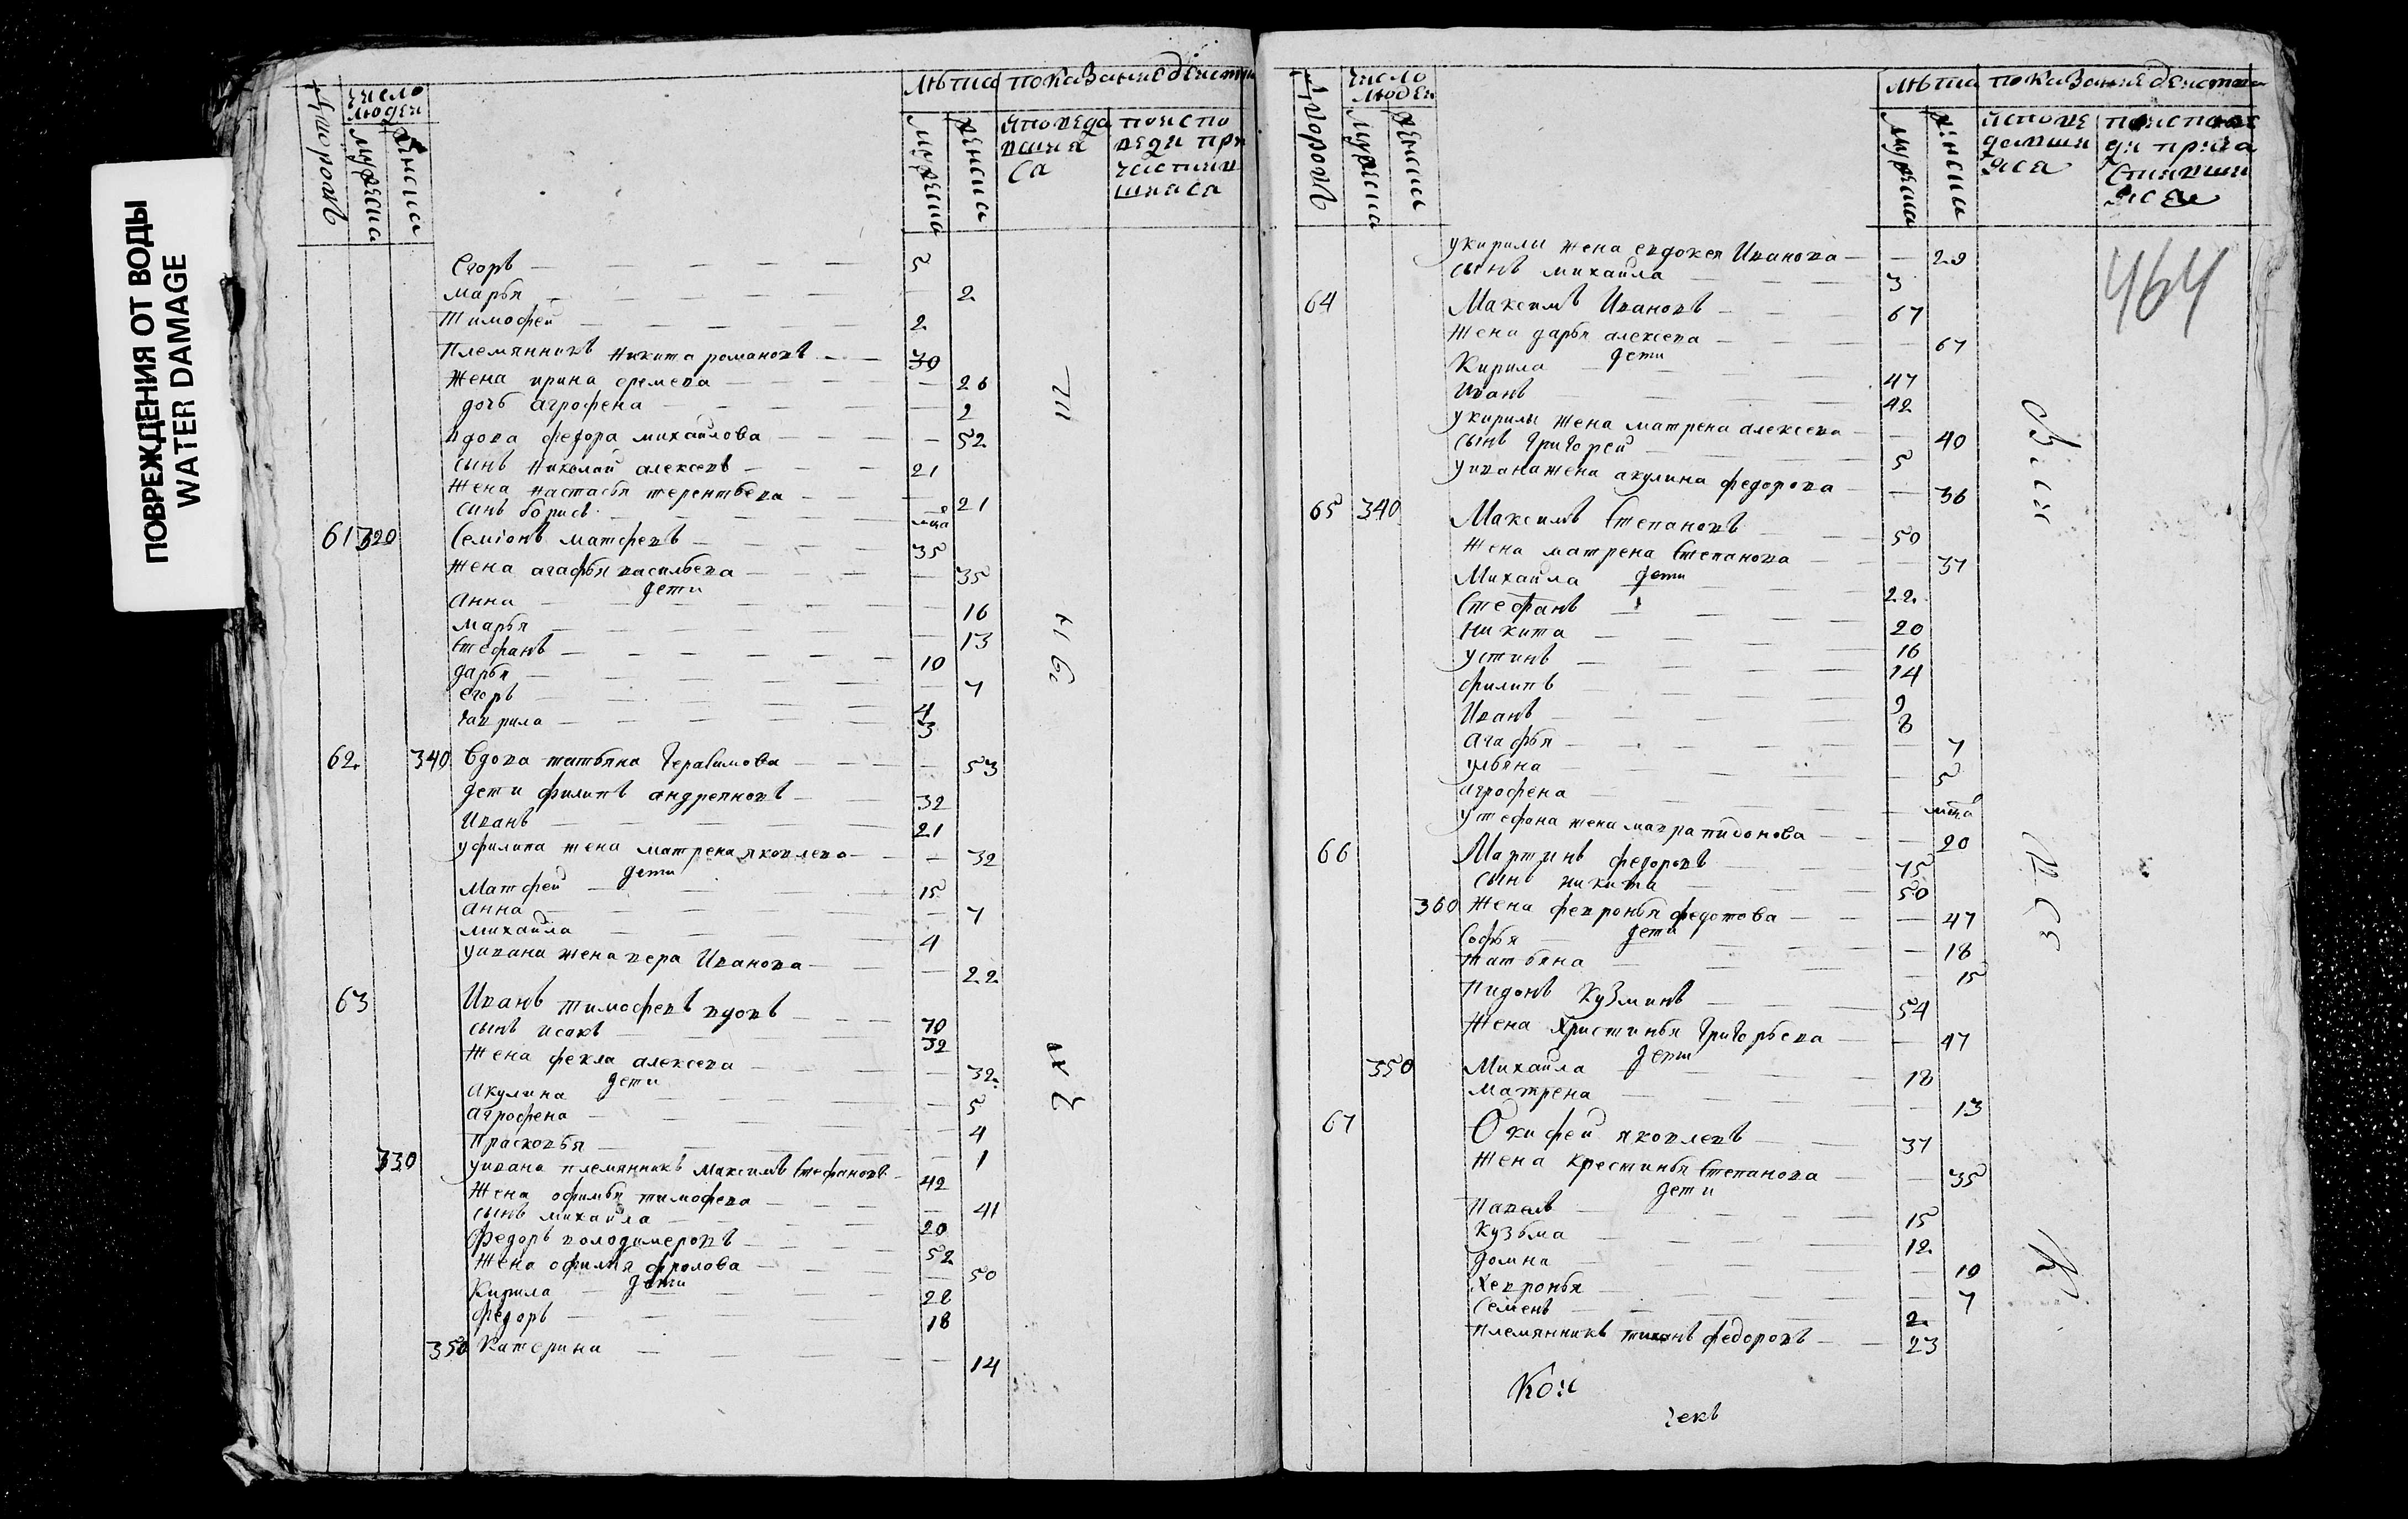 ПОВРЕЖДЕНИЯ ОТ ВОДЫ
WATER DAMAGE
число людеи
мужска
женска
лѣта
показание деиств
мужска
женска
исповеда вшия ся
по испо веди при частив шияся
Егоръ — 5
марья — 2
тимофеи — 2
племянникъ никита романовъ — 30
жена ирина еремева — 26
дочь агрофена — 2
вдова федора михаилова — 52
сынъ николаи алексевъ — 21
жена настасья терентьева — 21
сынъ борисъ — мца
61 320 Семіонъ матфевъ — 35
жена агафья васильева — 35
дети
анна — 16
марья — 13
стефанъ — 10
дарья — 7
егоръ — 4
гаврила — 3
62 340 Вдова татьяна герасимова — 53
дети филипъ андреяновъ — 32
Иванъ — 21
у филипа жена матрена яковлева — 32
дети
матфеи — 15
анна — 7
михаила — 4
у ивана жена вера Иванова — 22
63 Иванъ тимофевъ вдовъ — 70
сынъ исакъ — 32
жена фекла алексева — 32
дети
акулина — 5
агрофена — 4
прасковья — 1
330 у ивана племянникъ максимъ стефановъ — 42
жена офимья тимофева — 41
сынъ михаила — 20
федоръ володимеровъ — 52
жена офимья фролова — 50
дети
Кирила — 28
федоръ — 18
350 Катерина — 14
число людеи
мужска
женска
лѣта
показание деиств
мужска
женска
464
у кирилы жена евдокея Иванова — 29
сынъ михаила — 3
64 Максимъ Ивановъ — 67
жена дарья алексева — 67
дети
Кирила — 47
Иванъ — 42
у кирилы жена матрена алексева — 40
сынъ григореи — 5
у ивана жена акулина федорова — 36
65 340 Максимъ степановъ — 50
жена матрена степанова — 37
дети
Михаила — 22
Стефанъ — 20
никита — 16
устинъ — 14
филипъ — 9
Иванъ — 8
агафья — 7
ульяна — 5
агрофена — мца
у стефана жена мавра пидонова — 20
66 Мартинъ федоровъ — 75
сынъ никита — 50
360 жена февронья федотова — 47
дети
Софья — 18
татьяна — 15
пидонъ кузминъ — 54
жена христинья григорьева — 47
дети
350 Михаила — 18
матрена — 13
67 Окифеи яковлевъ — 37
жена крестинья степанова — 35
дети
павелъ — 15
кузьма — 12
домна — 10
хевронья — 7
семенъ — 2
племянникъ тихонъ федоровъ — 23